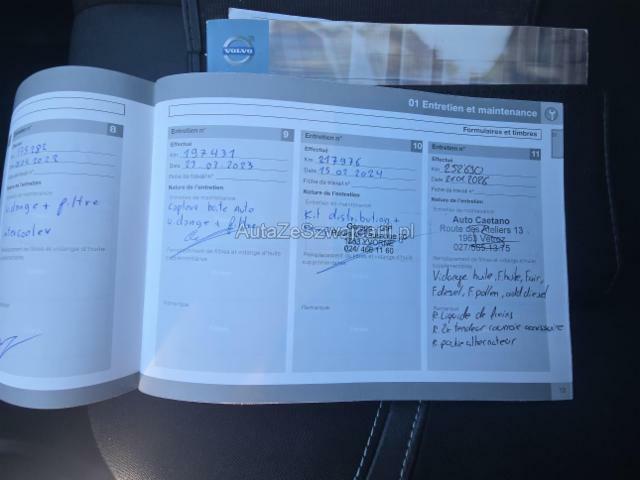 VOLVO
01 Entretien et maintenance
Formulaires et timbres
8
Nature de l'entretien
vidange + filtre
intercooler
Entretien n° 9
Effectué
Km 197431
Date 21.07.2023
Fiche de travail n°
Nature de l'entretien
Entretien de maintenance
Capteur boite auto
vidange + filtre
Remplacement de filtres et vidange d'huile
supplémentaires
Remarque
Entretien n° 10
Effectué
Km 217976
Date 15.02.2024
Fiche de travail n°
Nature de l'entretien
Entretien de maintenance
Kit distribution +
1853 YVORNE
024/ 466 11 60
Remplacement de filtres et vidange d'huile
supplémentaires
Remarque
Entretien n° 11
Effectué
Km 252690
Date
Fiche de travail n°
Nature de l'entretien
Entretien de maintenance
Auto Caetano
Route des Ateliers 13
1963 Vétroz
027/ 565 13 75
Remplacement de filtres et vidange d'huile
supplémentaires
Vidange huile, F.huile, F.air,
F.diesel, F.pollen, add diesel
Remarque
R. Liquide de freins
R. Le tendeur courroie accessoire
R. poulie alternateur
AutaZeSzwajcarii.pl